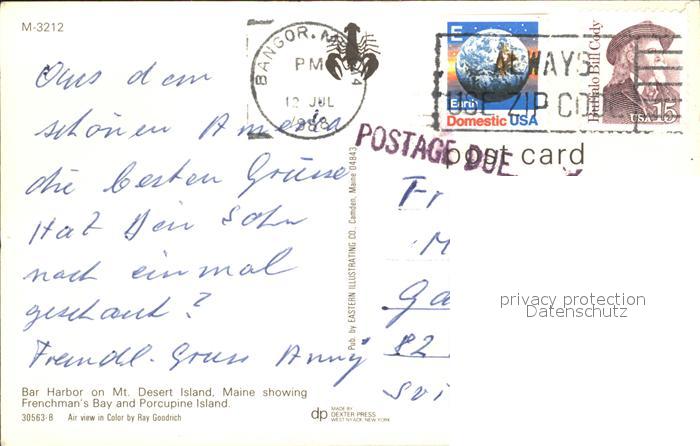 M-3212
BANGOR, M
PM
12 JUL
1988
ALWAYS
USE ZIP CO
E
Earth
Domestic USA
Buffalo Bill Cody
USA 15
POSTAGE DUE
post card
Aus dem
schönen Amerika
die besten Grüsse
Hat Dein Sohn
noch einmal
geschaut?
Freundl. Gruss Anny
Fr
M
Ga
82
Pub. by EASTERN ILLUSTRATING CO., Camden, Maine 04843
privacy protection
Datenschutz
Bar Harbor on Mt. Desert Island, Maine showing
Frenchman's Bay and Porcupine Island.
30563-B Air view in Color by Ray Goodrich
dp MADE BY
DEXTER PRESS
WEST NYACK, NEW YORK